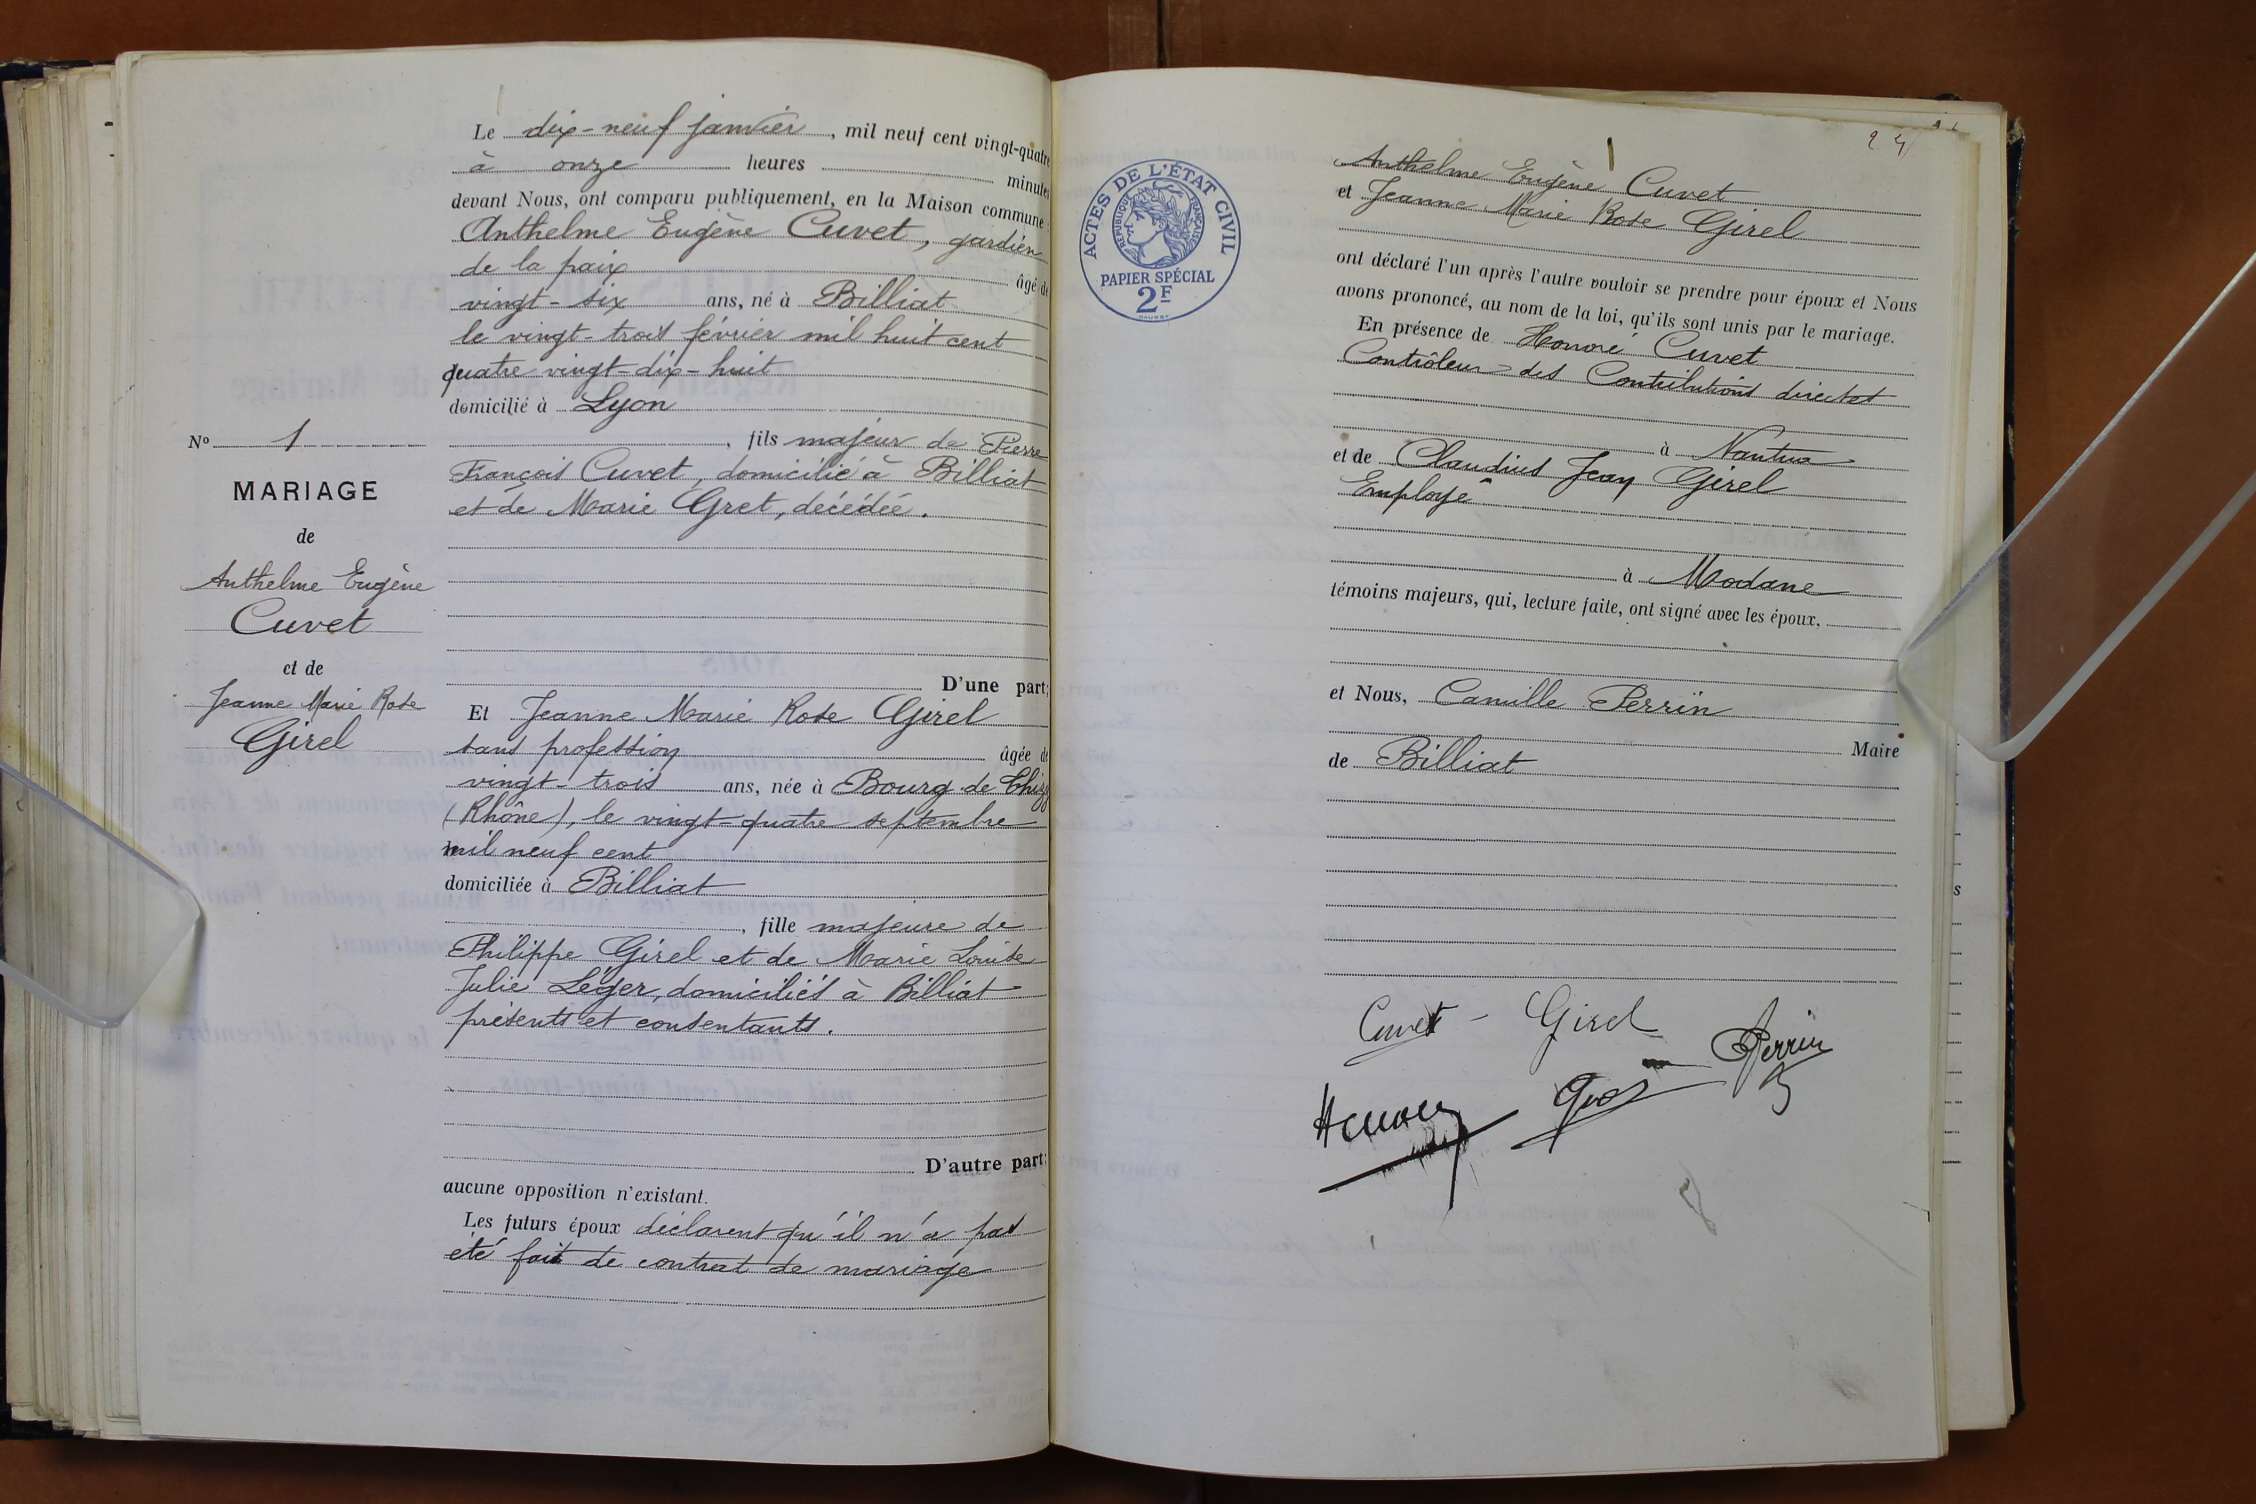 Le dix-neuf janvier, mil neuf cent vingt-quatre
à onze heures minutes
devant Nous, ont comparu publiquement, en la Maison commune
Anthelme Eugène Cuvet, gardien
de la paix âgé de
vingt-six ans, né à Billiat
le vingt-trois février mil huit cent
quatre vingt-dix-huit
domicilié à Lyon
, fils majeur de Pierre
François Cuvet, domicilié à Billiat
et de Marie Gret, décédée.
D'une part;
Nº 1
MARIAGE
de
Anthelme Eugène
Cuvet
et de
Jeanne Marie Rose
Girel
Et Jeanne Marie Rose Girel
sans profession âgée de
vingt-trois ans, née à Bourg de Thizy
(Rhône), le vingt-quatre septembre
mil neuf cent
domiciliée à Billiat
, fille majeure de
Philippe Girel et de Marie Louise
Julie Léger, domiciliés à Billiat
présents et consentants.
D'autre part:
aucune opposition n'existant.
Les futurs époux déclarent qu'il n'a pas
été fait de contrat de mariage
ACTES DE L'ÉTAT CIVIL
RÉPUBLIQUE FRANÇAISE
PAPIER SPÉCIAL
2F
1
Anthelme Eugène Cuvet
et Jeanne Marie Rose Girel
ont déclaré l'un après l'autre vouloir se prendre pour époux et Nous
avons prononcé, au nom de la loi, qu'ils sont unis par le mariage.
En présence de Honoré Cuvet
Contrôleur des Contributions directes
à Nantua
et de Claudius Jean Girel
Employé
à Modane
témoins majeurs, qui, lecture faite, ont signé avec les époux,
et Nous, Camille Perrin
Maire
de Billiat
Cuvet - Girel
Perrin